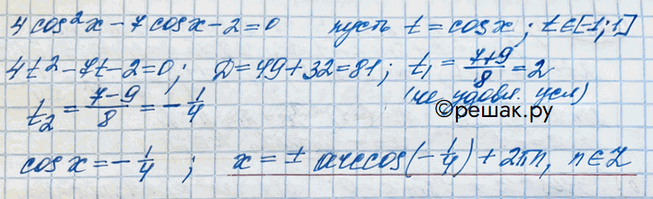 4 cos²x - 7 cos x - 2 = 0 пусть t = cos x ; t ∈ [-1; 1]
4t² - 7t - 2 = 0 ; D = 49 + 32 = 81 ; t₁ = (7+9)/8 = 2
t₂ = (7-9)/8 = -1/4 (не удовл. усл)
©решак.ру
cos x = -1/4 ; x = ± arccos(-1/4) + 2πn, n ∈ Z